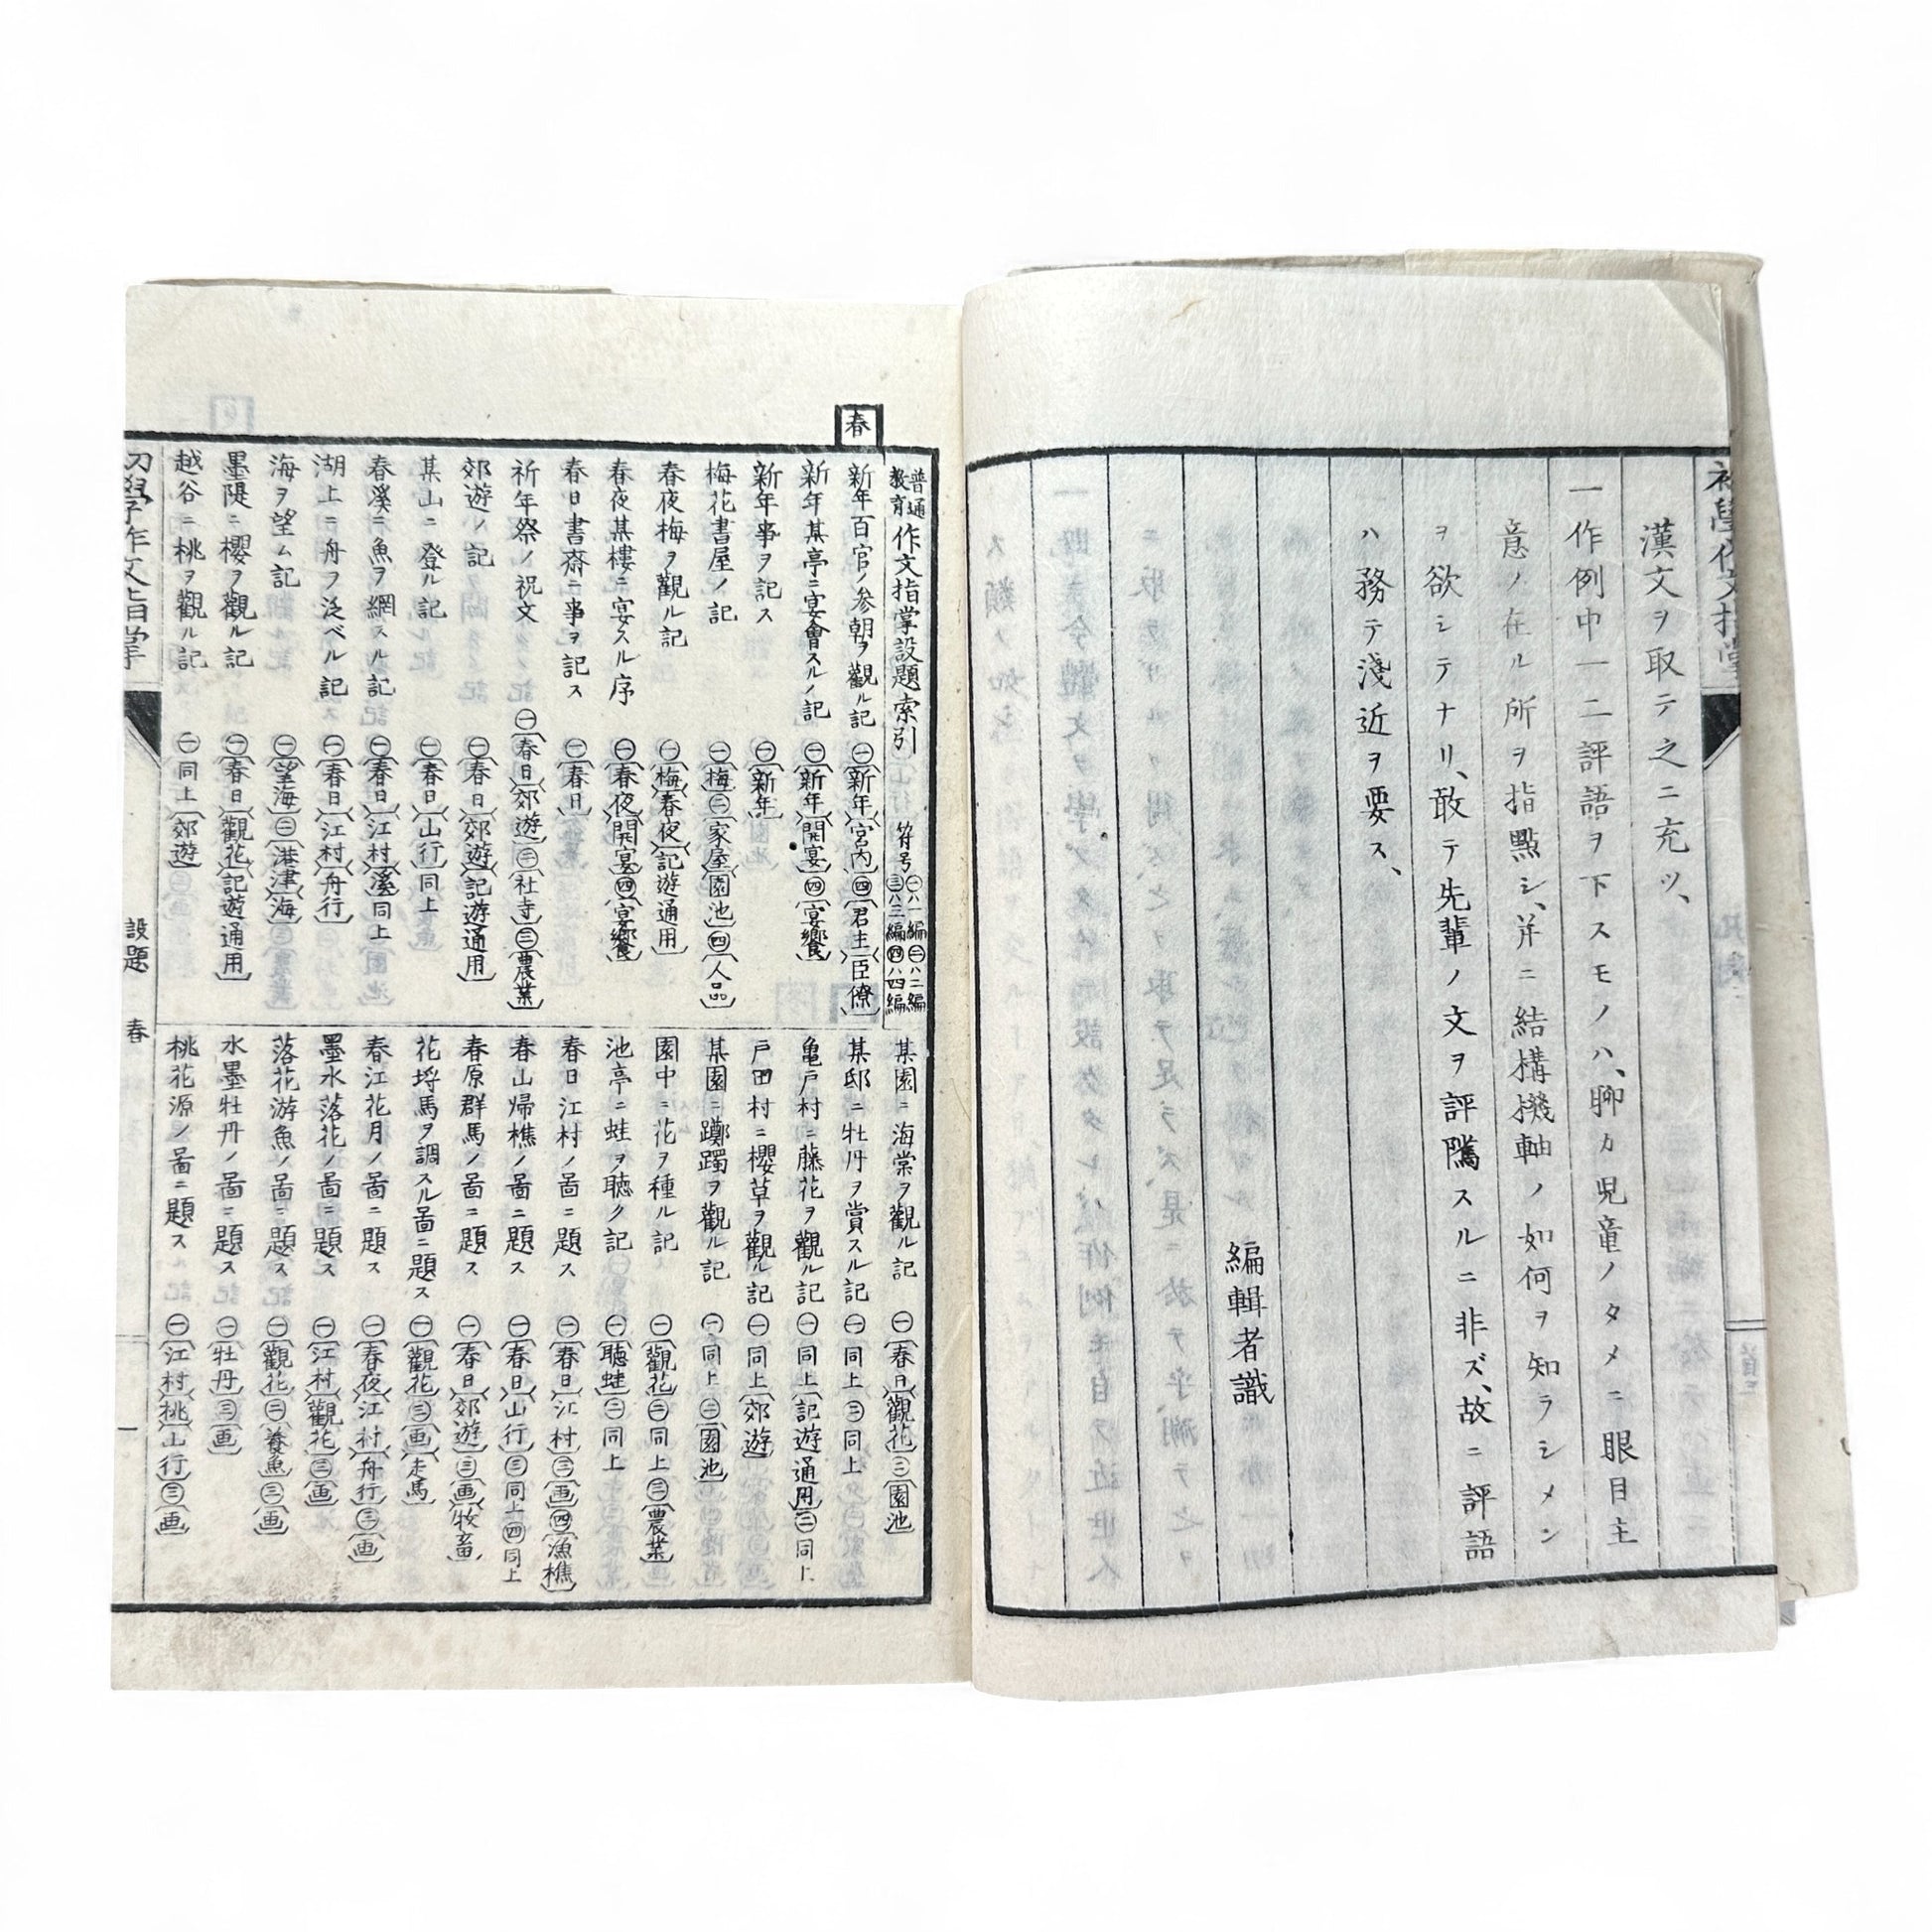 漢文ヲ取テ之ニ充ツ、
一作例中一二評語ヲ下スモノハ、聊カ児童ノタメニ眼目主
意ノ在ル所ヲ指點シ、并ニ結構機軸ノ如何ヲ知ラシメン
ヲ欲シテナリ、敢テ先輩ノ文ヲ評騭スルニ非ズ、故ニ評語
ハ務テ淺近ヲ要ス、
編輯者識
春
普通教育作文指掌設題索引 符号㊀ハ一編㊁ハ二編㊂ハ三編㊃ハ四編
新年百官ノ参朝ヲ觀ル記 ㊀(新年)(宮内)㊃(君主)(臣僚)
新年某亭ニ宴會スルノ記 ㊀(新年)(開宴)㊃(宴饗)
新年事ヲ記ス ㊀(新年)
梅花書屋ノ記 ㊀(梅)㊁(家屋)(園池)㊃(人品)
春夜梅ヲ觀ル記 ㊀(梅)(春夜)(記遊通用)
春夜某樓ニ宴スル序 ㊀(春夜)(開宴)㊃(宴饗)
春日書齋ニ事ヲ記ス ㊀(春日)
祈年祭ノ祝文 ㊀(春日)(郊遊)㊁(社寺)㊂(農業)
郊遊ノ記 ㊀(春日)(郊遊)(記遊通用)
某山ニ登ル記 ㊀(春日)(山行)同上
春溪ニ魚ヲ網スル記 ㊀(春日)(江村)(溪)同上
湖上ニ舟ヲ泛ベル記 ㊀(春日)(江村)(舟行)
海ヲ望ム記 ㊀(望海)㊁(港津)(海)
墨隄ニ櫻ヲ觀ル記 ㊀(春日)(觀花)(記遊通用)
越谷ニ桃ヲ觀ル記 ㊀同上(郊遊)
某園ニ海棠ヲ觀ル記 ㊀(春日)(觀花)㊁(園池)
某邸ニ牡丹ヲ賞スル記 ㊀同上㊁同上
亀戸村ニ藤花ヲ觀ル記 ㊀同上(記遊通用)㊁同上
戸田村ニ櫻草ヲ觀ル記 ㊀同上(郊遊)
某園ニ躑躅ヲ觀ル記 ㊀同上㊁(園池)
園中ニ花ヲ種ル記 ㊀(觀花)㊁同上㊂(農業)
池亭ニ蛙ヲ聴ク記 ㊀(聴蛙)㊁同上
春日江村ノ啚ニ題ス ㊀(春日)(江村)㊂(画)㊃(漁樵)
春山帰樵ノ啚ニ題ス ㊀(春日)(山行)㊂同上㊃同上
春原群馬ノ啚ニ題ス ㊀(春日)(郊遊)㊂(画)(牧畜)
花埒馬ヲ調スル啚ニ題ス ㊀(觀花)㊂(画)(走馬)
春江花月ノ啚ニ題ス ㊀(春夜)(江村)(舟行)㊂(画)
墨水落花ノ啚ニ題ス ㊀(江村)(觀花)㊂(画)
落花游魚ノ啚ニ題ス ㊀(觀花)㊁(養魚)㊂(画)
水墨牡丹ノ啚ニ題ス ㊀(牡丹)㊂(画)
桃花源ノ啚ニ題ス ㊀(江村)(桃)(山行)㊂(画)
初學作文指掌 設題 春 一